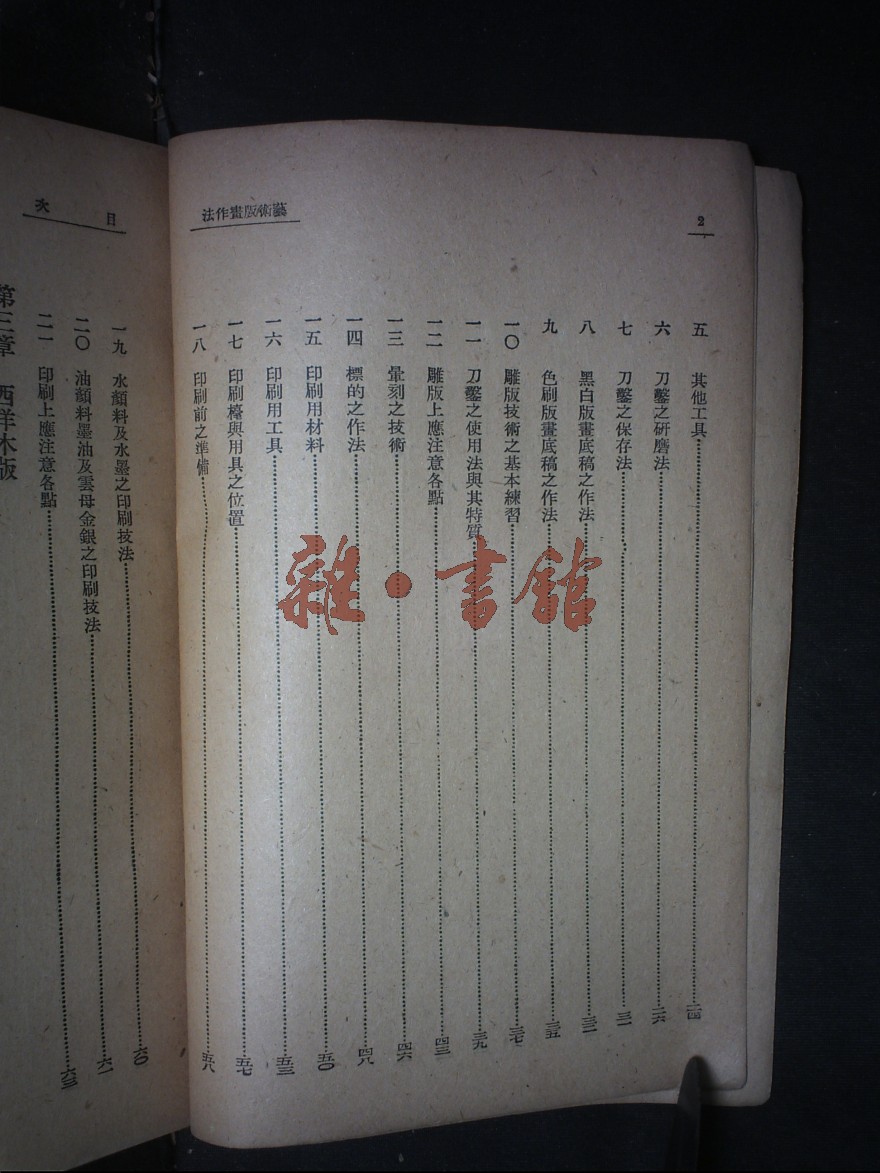 藝術版畫作法
2
五 其他工具 二四
六 刀鑿之研磨法 二六
七 刀鑿之保存法 三一
八 黑白版畫底稿之作法 三二
九 色刷版畫底稿之作法 三五
一〇 雕版技術之基本練習 三七
一一 刀鑿之使用法與其特質 三九
一二 雕版上應注意各點 四三
一三 暈刻之技術 四六
一四 標的之作法 四八
一五 印刷用材料 五〇
一六 印刷用工具 五三
一七 印刷檯與用具之位置 五七
一八 印刷前之準備 五八
目次
一九 水顏料及水墨之印刷技法 六〇
二〇 油顏料墨油及雲母金銀之印刷技法 六一
二一 印刷上應注意各點 六三
第三章 西洋木版
雜·書館